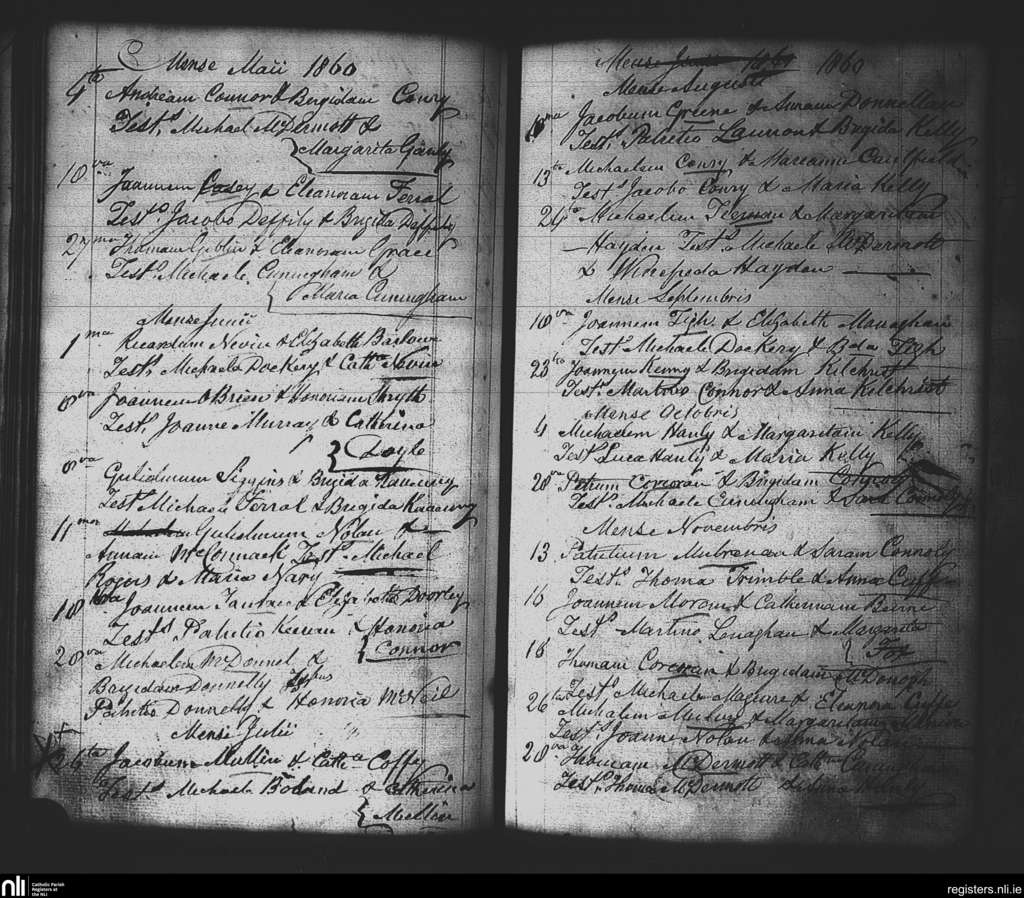 Mense Maii 1860
4ta Andream Connor & Brigidam Conry
Tests. Michael McDermott &
Margarita Ganly
18va Joannem Casey & Eleanoram Ferral
Tests. Jacobo Deffily & Brigita Deffily
27ma Thomam Giblin & Eleanoram Grace
Tests. Michaele Cuningham &
Maria Cuningham
Mense Junii
1ma Ricardum Nevin & Elizabeth Barlow
Tests. Michaele Dockery & Catha Nevin
8va Joannem O'Brien & Honoriam Smyth
Test. Joanne Murray & Catherina
Doyle
8va Gulielmum Siggins & Brigida
Test Michaele Ferral & Brigida
11ma Gulielmum Nolan &
Annam McCormack Tests. Michael
Rogers & Maria Nary
18va Joannem & Elizabeth Doorley
Tests Patritio & Honoria
Connor
20va Michaelem McDonnel &
Brigidam Donnelly
Patritio Donnelly & Honoria McNeil
Mense Julii
26ta Jacobum Mullin & Catha Coffy
Tests. Michaele Boland & Catherina
Mullin
1860
Mense Augusti
Jacobum Greene & Saram Donnellan
Tests. Patritio Lannon & Brigida Kelly
13 Michaelem Conry & Mariam Caulfield
Tests. Jacobo Conry & Maria Kelly
24 Michaelem & Margaritam
Hayden Tests. Michaele McDermott
& Winefreda Hayden
Mense Septembris
18va Joannem Tighe & Elizabeth Monaghan
Tests. Michaele Dockery & Bda Tigh
23 Joannem & Brigidam Kilchrist
Tests. Martino Connor & Anna Kilchrist
Mense Octobris
4 Michaelem Hanly & Margaritam Kelly
Tests. Luca Hanly & Maria Kelly
28va Patrum Corcoran & Brigidam
Tests. Michaele Cuningham & Sara Connolly
Mense Novembris
13 Patritium Mulrenan & Saram Connoly
Tests. Thoma Trimble & Anna Cuffe
16 Joannem Moran & Catherinam Beirne
Tests. Martino Lenaghan & Margarita
Fox
18 Thomam Corcoran & Brigidam McDonogh
Tests. Michaele Maguire & Eleanora Cuffe
26ta Michaelem & Margaritam
Tests. Joanne Nolan & Anna Nolan
28va Thomam McDermott & Cath Cuningham
Tests. Thoma McDermott &
nli
Catholic Parish
Registers at
the NLI
registers.nli.ie